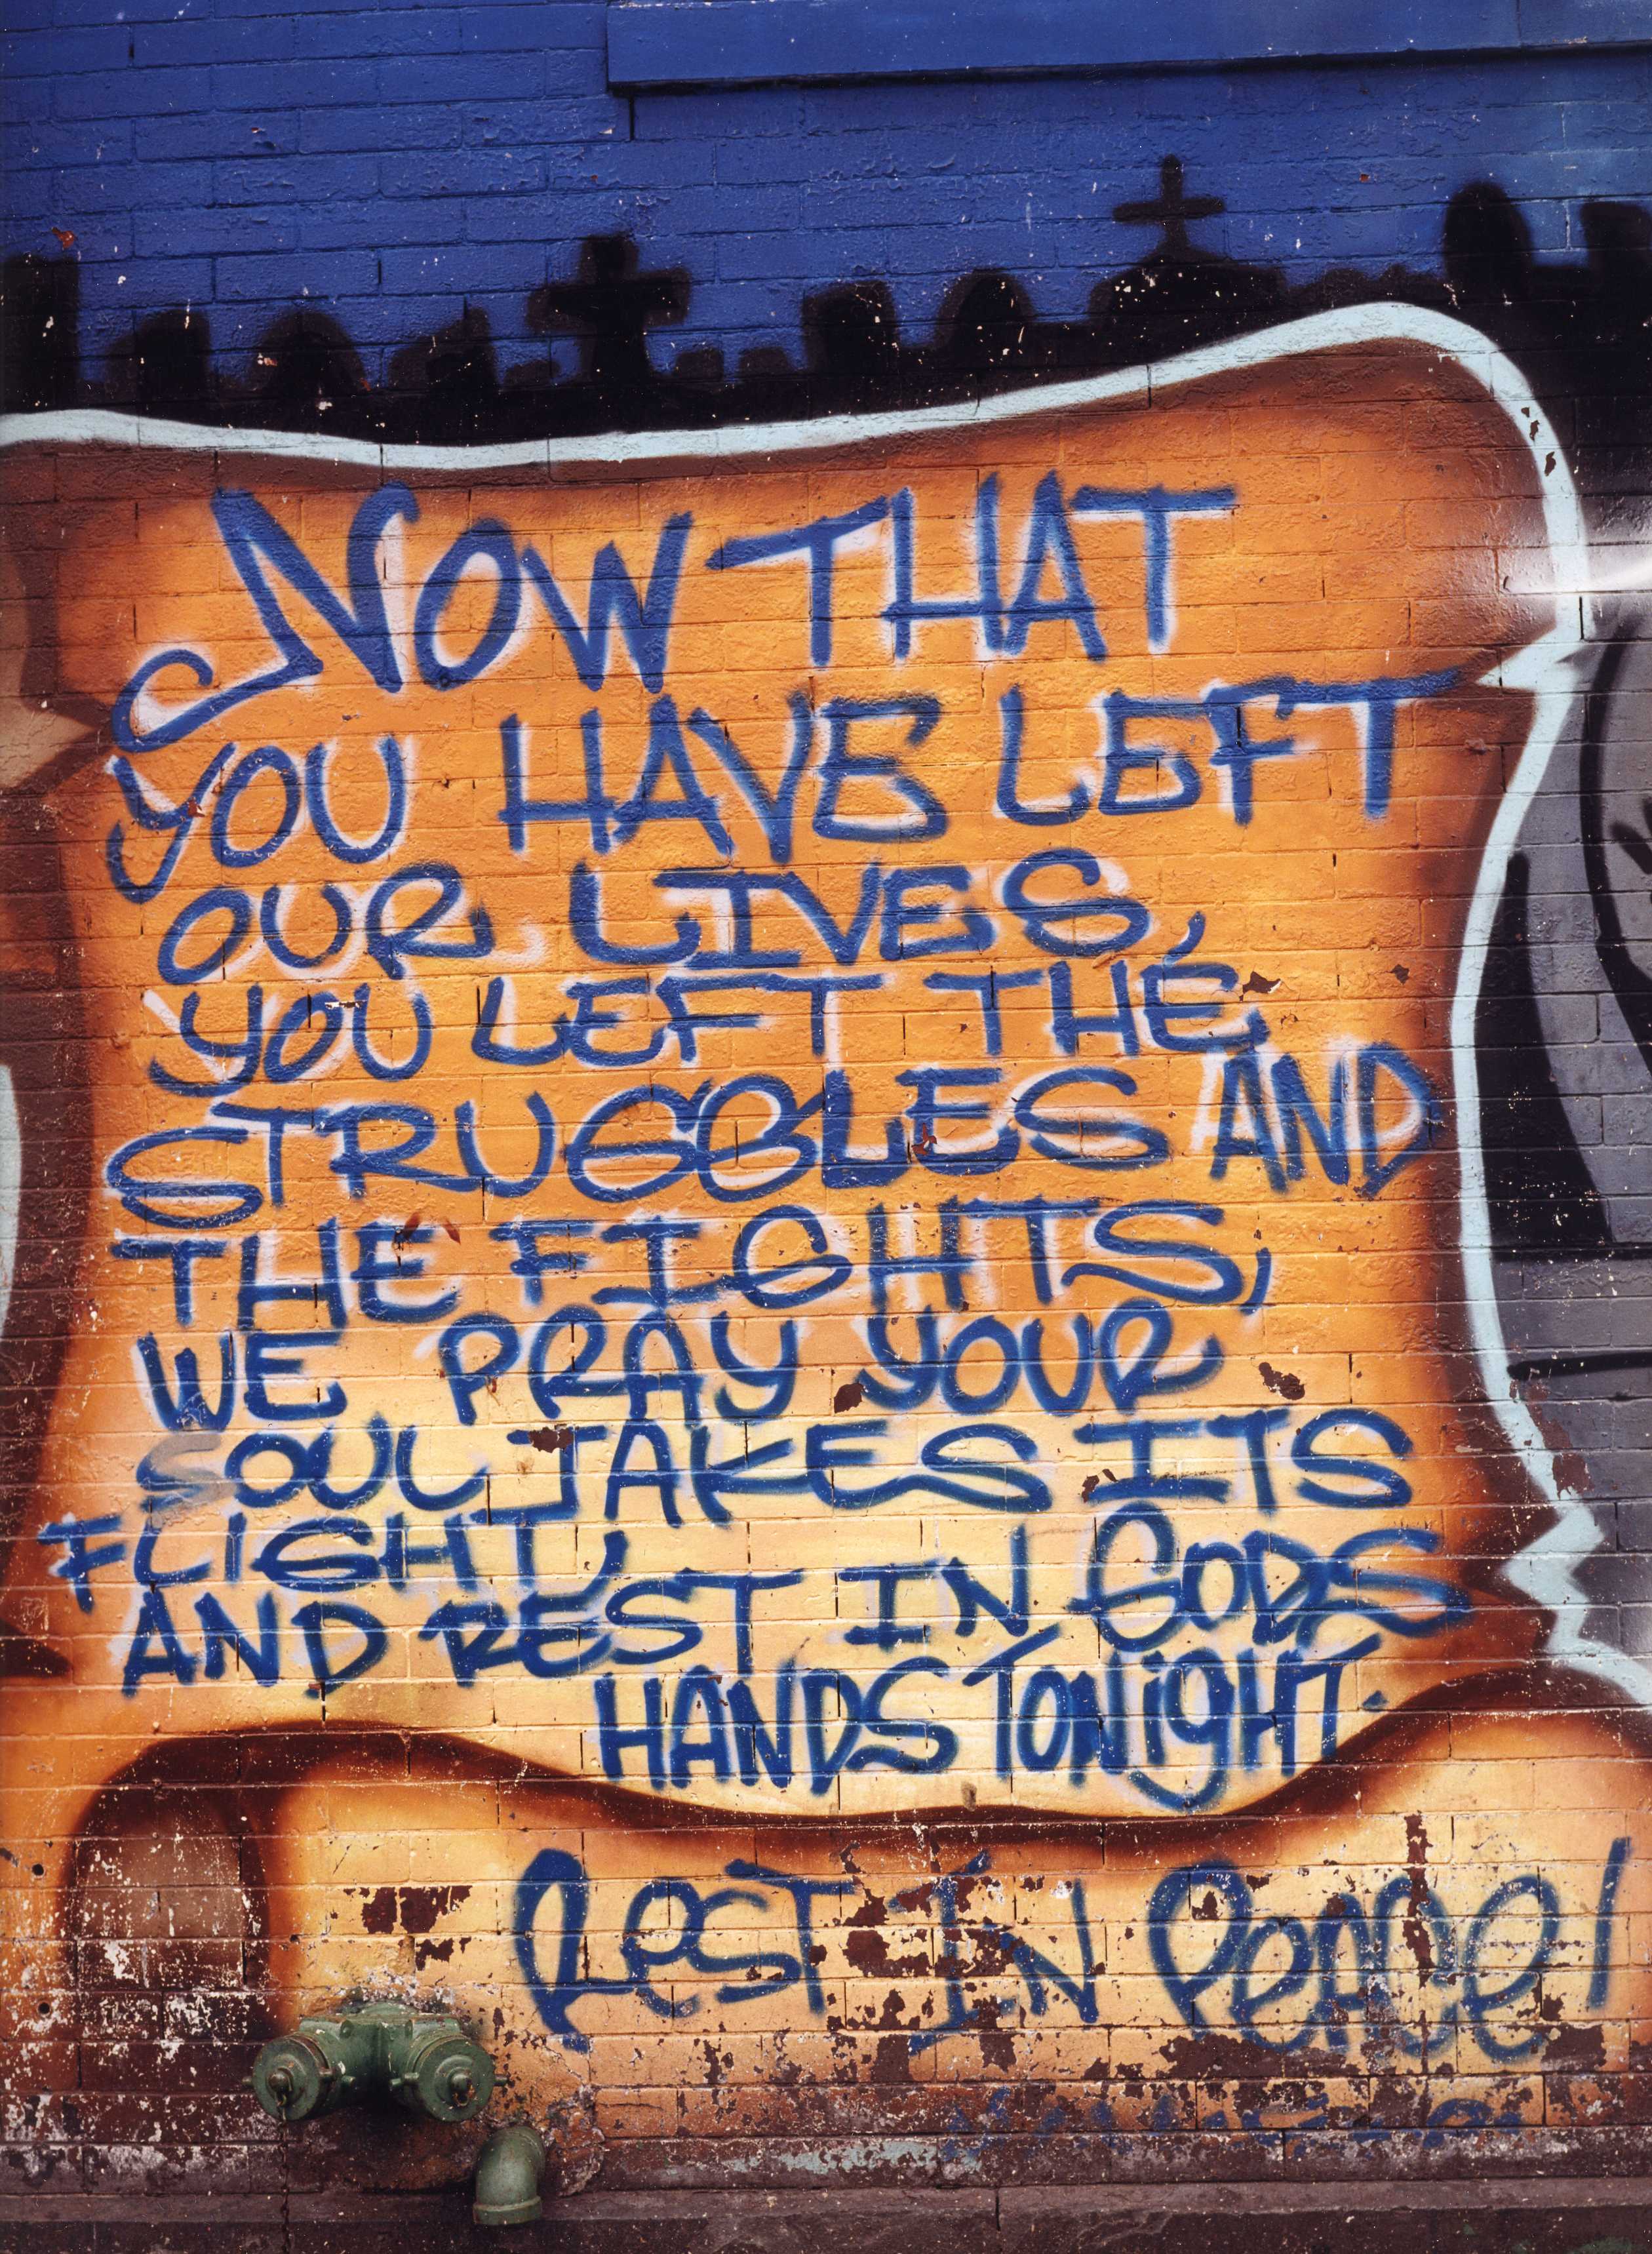 NOW THAT
YOU HAVE LEFT
OUR LIVES,
YOU LEFT THE
STRUGGLES AND
THE FIGHTS,
WE PRAY YOUR
SOUL TAKES ITS
FLIGHT,
AND REST IN GODS
HANDS TONiGHT.
ReST IN PeACe!